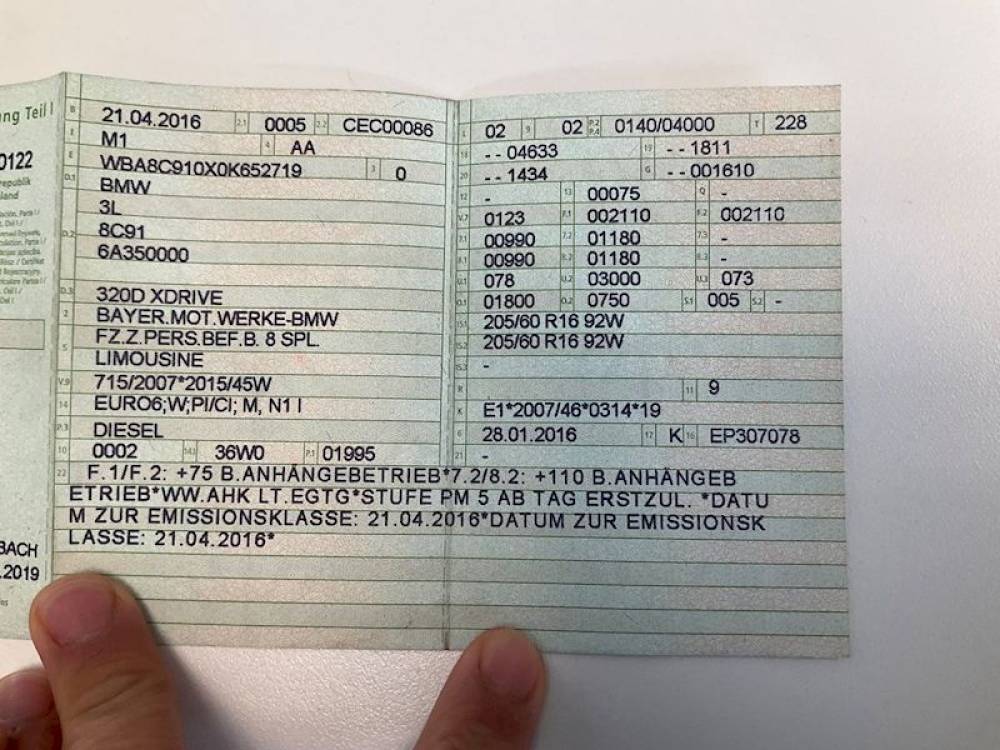 ng Teil I
0122
republik
land
BACH
.2019
B 21.04.2016 2.1 0005 2.2 CEC00086
M1 4 AA
E WBA8C910X0K652719 3 0
D.1 BMW
3L
D.2 8C91
6A350000
D.3 320D XDRIVE
2 BAYER.MOT.WERKE-BMW
FZ.Z.PERS.BEF.B. 8 SPL.
5 LIMOUSINE
V.9 715/2007*2015/45W
14 EURO6;W;PI/CI; M, N1 I
P.3 DIESEL
10 0002 14.1 36W0 P.1 01995
L 02 9 02 P.2 P.4 0140/04000 T 228
18 --04633 19 --1811
20 --1434 G --001610
12 - 13 00075 Q -
V.7 0123 F.1 002110 F.2 002110
7.1 00990 7.2 01180 7.3 -
8.1 00990 8.2 01180 8.3 -
U.1 078 U.2 03000 U.3 073
O.1 01800 O.2 0750 S.1 005 S.2 -
15.1 205/60 R16 92W
15.2 205/60 R16 92W
15.3 -
R 11 9
K E1*2007/46*0314*19
6 28.01.2016 17 K 16 EP307078
21 -
22 F.1/F.2: +75 B.ANHÄNGEBETRIEB*7.2/8.2: +110 B.ANHÄNGEB
ETRIEB*WW.AHK LT.EGTG*STUFE PM 5 AB TAG ERSTZUL. *DATU
M ZUR EMISSIONSKLASSE: 21.04.2016*DATUM ZUR EMISSIONSK
LASSE: 21.04.2016*